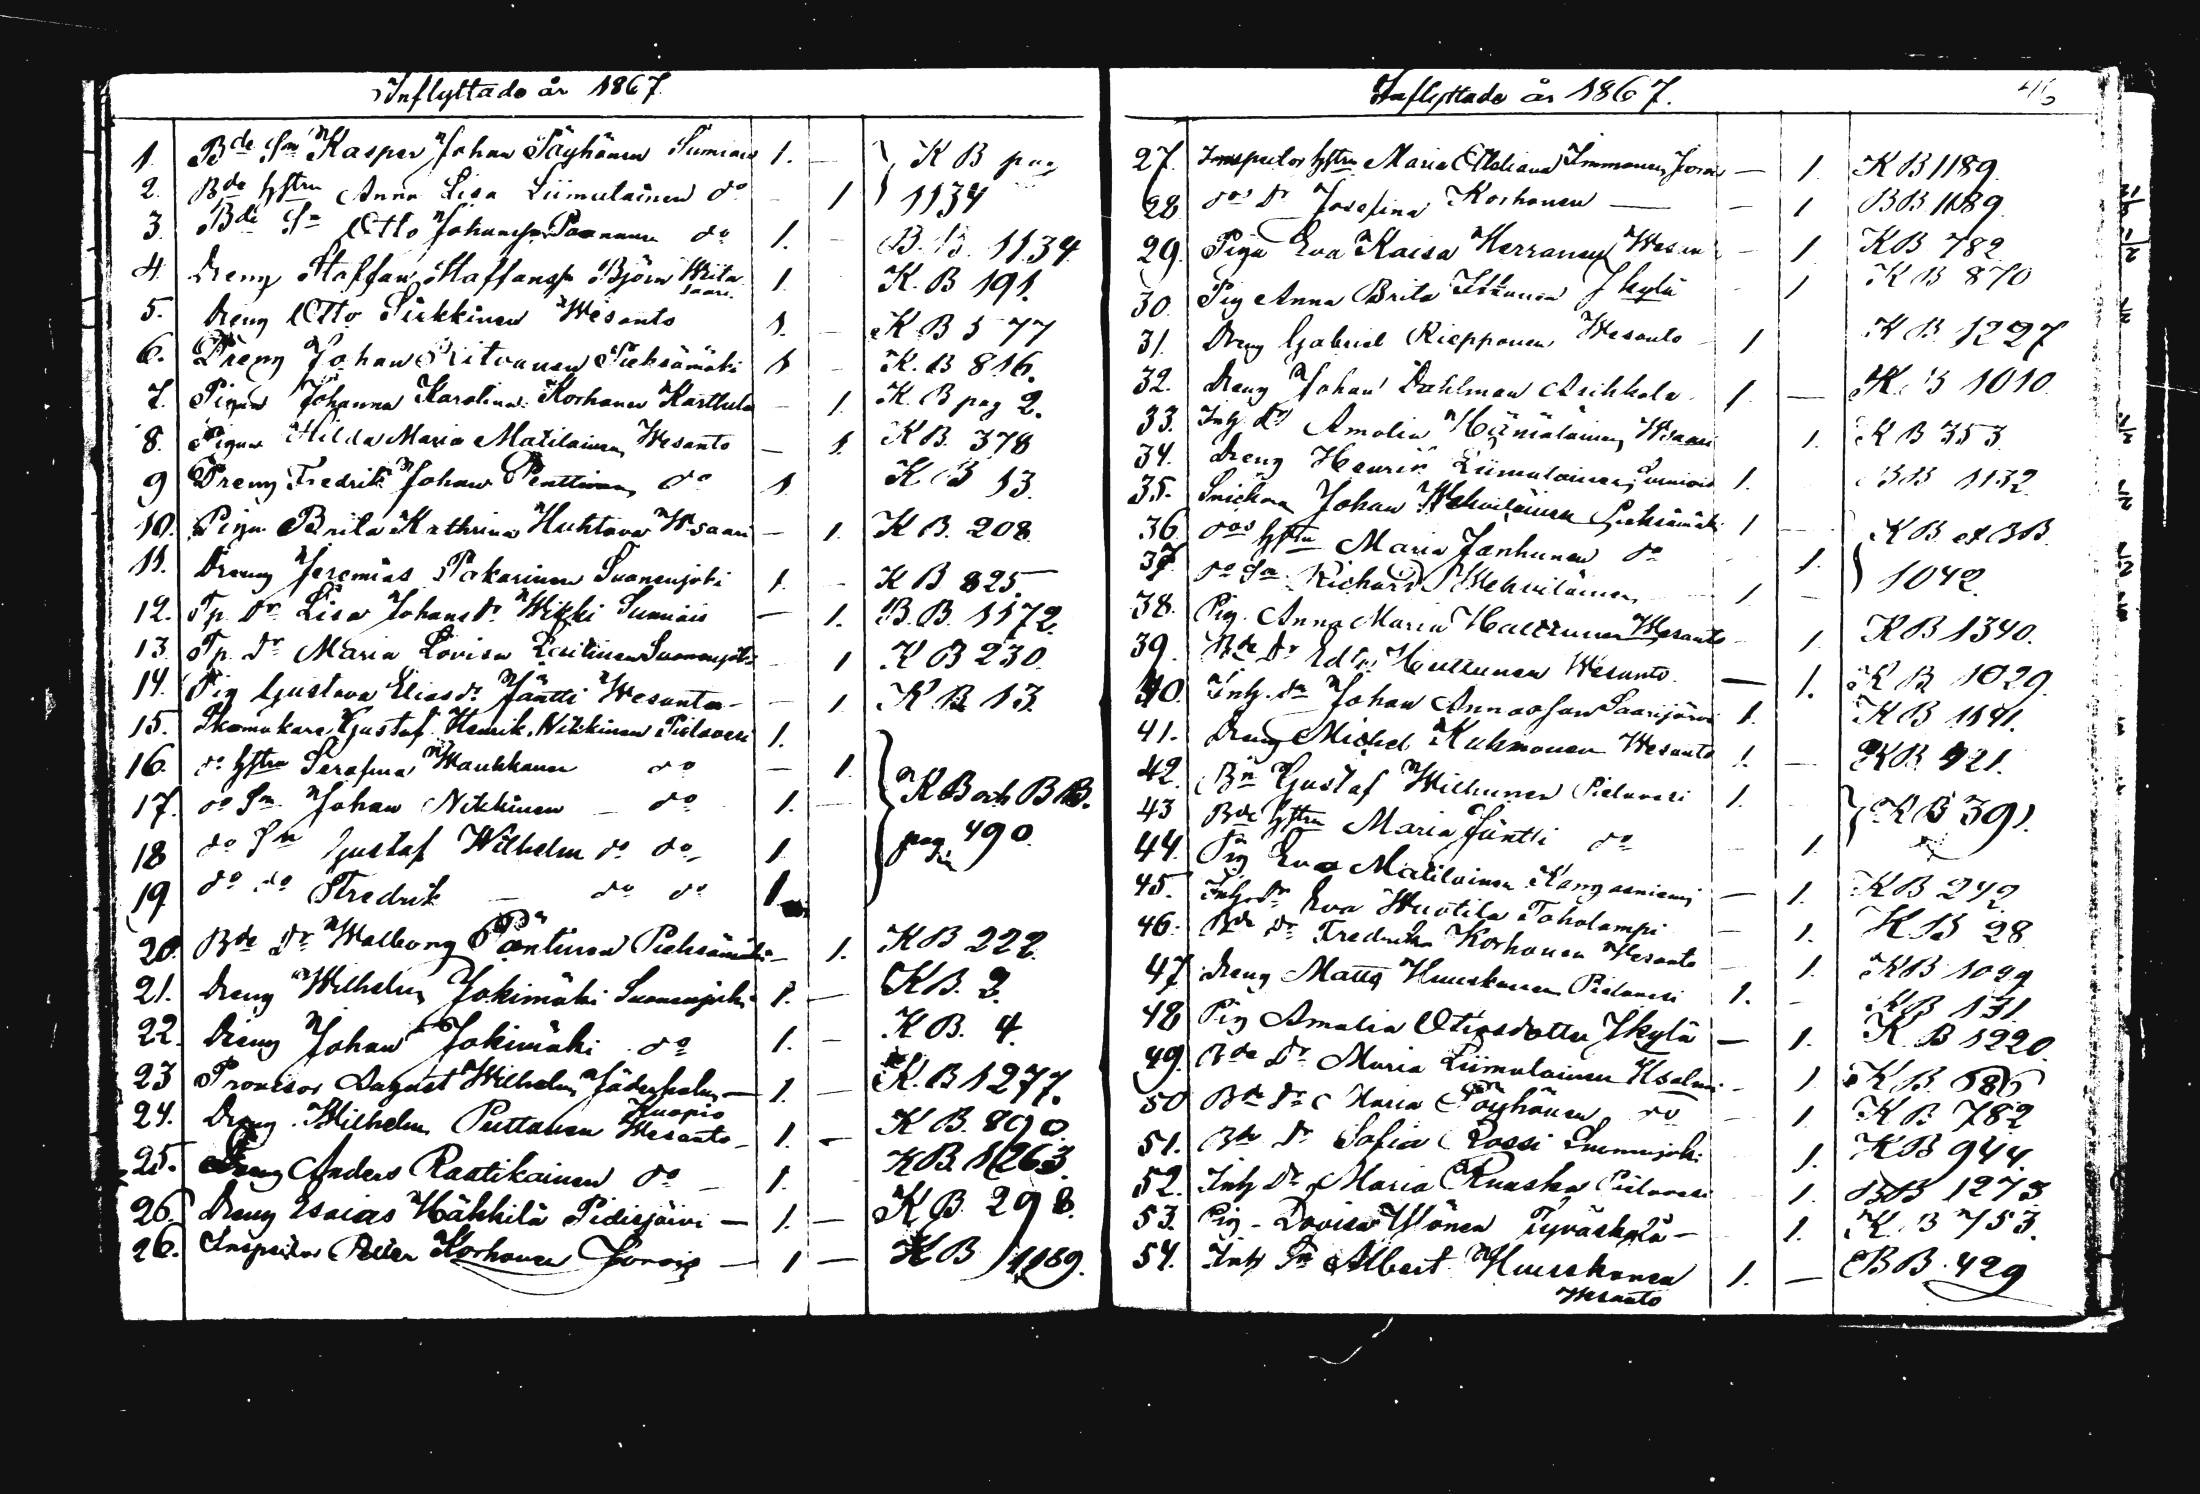 Inflyttade år 1867.
1. Bde Sn Kasper Johan Päyhönen Sumiais 1. — K B pag
2. Bde hstru Anna Lisa Liimatainen do - 1 1134
3. Bde Sn Otto Johansson Paananen do 1. - B.B. 1134
4. Dreng Staffan Staffanss Björn Wiitasaari. 1. K. B 191.
5. Dreng Otto Pirkkinen Wesanto 1. — K B 577
6. Dreng Johan Ritvanen Pieksämäki 1 - K. B 816.
7. Pigan Johanna Karolina Korhonen Karttula - 1. K. B pag 2.
8. Pigan Hilda Maria Matilainen Wesanto — 1. K B. 378
9 Dreng Fredrik Johan Penttinen do 1. K B 13.
10. Pigan Brita Kathrina Huhtava Wsaari — 1. K B. 208.
11. Dreng Jeremias Pakarinen Suonenjoki 1. - K B 825.
12. Tp. Dr Lisa Johansdr Wikki Sumiais — 1. B. B. 1172.
13. Tp. Dr Maria Lovisa Suonenjoki - 1 K B 230.
14. Pig Gustava Eliasdr Jäntti Wesanto - - 1 K B 13.
15. Skomakare Gustaf Henrik Nikkinen Pielavesi 1.
16. do hstru Serafina Waukkonen do — 1.
17. do Sn Johan Nikkinen — do 1. — K B och B B.
18 do Sn Gustaf Wilhelm do do 1 pag 490.
19 do do Fredrik — do do 1.
20. Bde Dr Walborg Pöntinen Pieksämäki - 1. K B 222.
21. Dreng Wilhelm Jokimäki Suonenjoki 1. — K B. 3.
22. Dreng Johan Jokimäki do 1. — K B. 4.
23 Provisor August Wilhelm Kuopio — 1. — K. B 1277.
24. Dreng Wilhelm Puttonen Wesanto - 1. - K B. 890.
25. Dreng Anders Raatikainen do — 1. K B. 1263.
26. Dreng Esaias Häkkilä Pidisjärvi — 1. — K B. 298.
26. Inspektor Petter Korhonen Jorois — 1 — K B 1189.
Inflyttade år 1867.
27. Inspector hstru Maria Immonen Jorois — 1. K B 1189.
28 dos Dr Josefina Korhonen — — 1 B B 1189.
29. Piga Eva Kaisa Herranen Wesan — 1. K B 782
30. Pig Anna Brita Jkylä - 1 K B 870
31. Dreng Gabriel Riepponen Wesanto - 1 K B 1297
32. Dreng Johan Dahlman 1. — K. B 1010.
33. Inh. Dr Amalia Hämäläinen Wsaari 1. K B 353.
34. Dreng Henrik Liimatainen Sumiais 1. B B 1132.
35. Snickare Johan Wehviläinen Pieksämäki 1 — K B et B B.
36. dos hstru Maria Janhunen do 1. 1042.
37. do Sn Richard Wehviläinen 1 —
38. Pig. Anna Maria Wesanto - 1. K B 1340.
39. Bde Dr Huttunen Wesanto. — 1. K B 1029.
40. Inh. Sn Johan Saarijärvi 1. K B 1141.
41. Dreng Michel Kuhmonen Wesanto 1. — K B 921.
42. Bn Gustaf Wilhunen Pielavesi 1. K B 391.
43 Bde hstru Maria Jäntti do - 1.
44. Pig Eva Matilainen Kangasniemi — 1. K B 242.
45. Inh. Dr Eva Wuotila Toholampi — 1. K B 28.
46. Bde Dr Fredrika Korhonen Wesanto - 1. K B 1099
47 Dreng Matts Huuskonen Pielavesi 1. - K B 131.
48 Pig Amalia Jkylä — 1. K. B 1220.
49. Bde Dr Maria Liimatainen - 1. K B. 686
50 Bde Dr Maria Pöyhönen do — 1. K B 782
51. Bde Dr Sofia Rossi Suonenjoki 1. K B 944.
52. Inh Dr Maria Ruuska Pielavesi 1. B B 1273
53. Pig - Lovisa Ylönen Jyväskylä — 1. K. B 753.
54. Inh Sn Albert Huuskonen Wesanto 1. — B B. 429